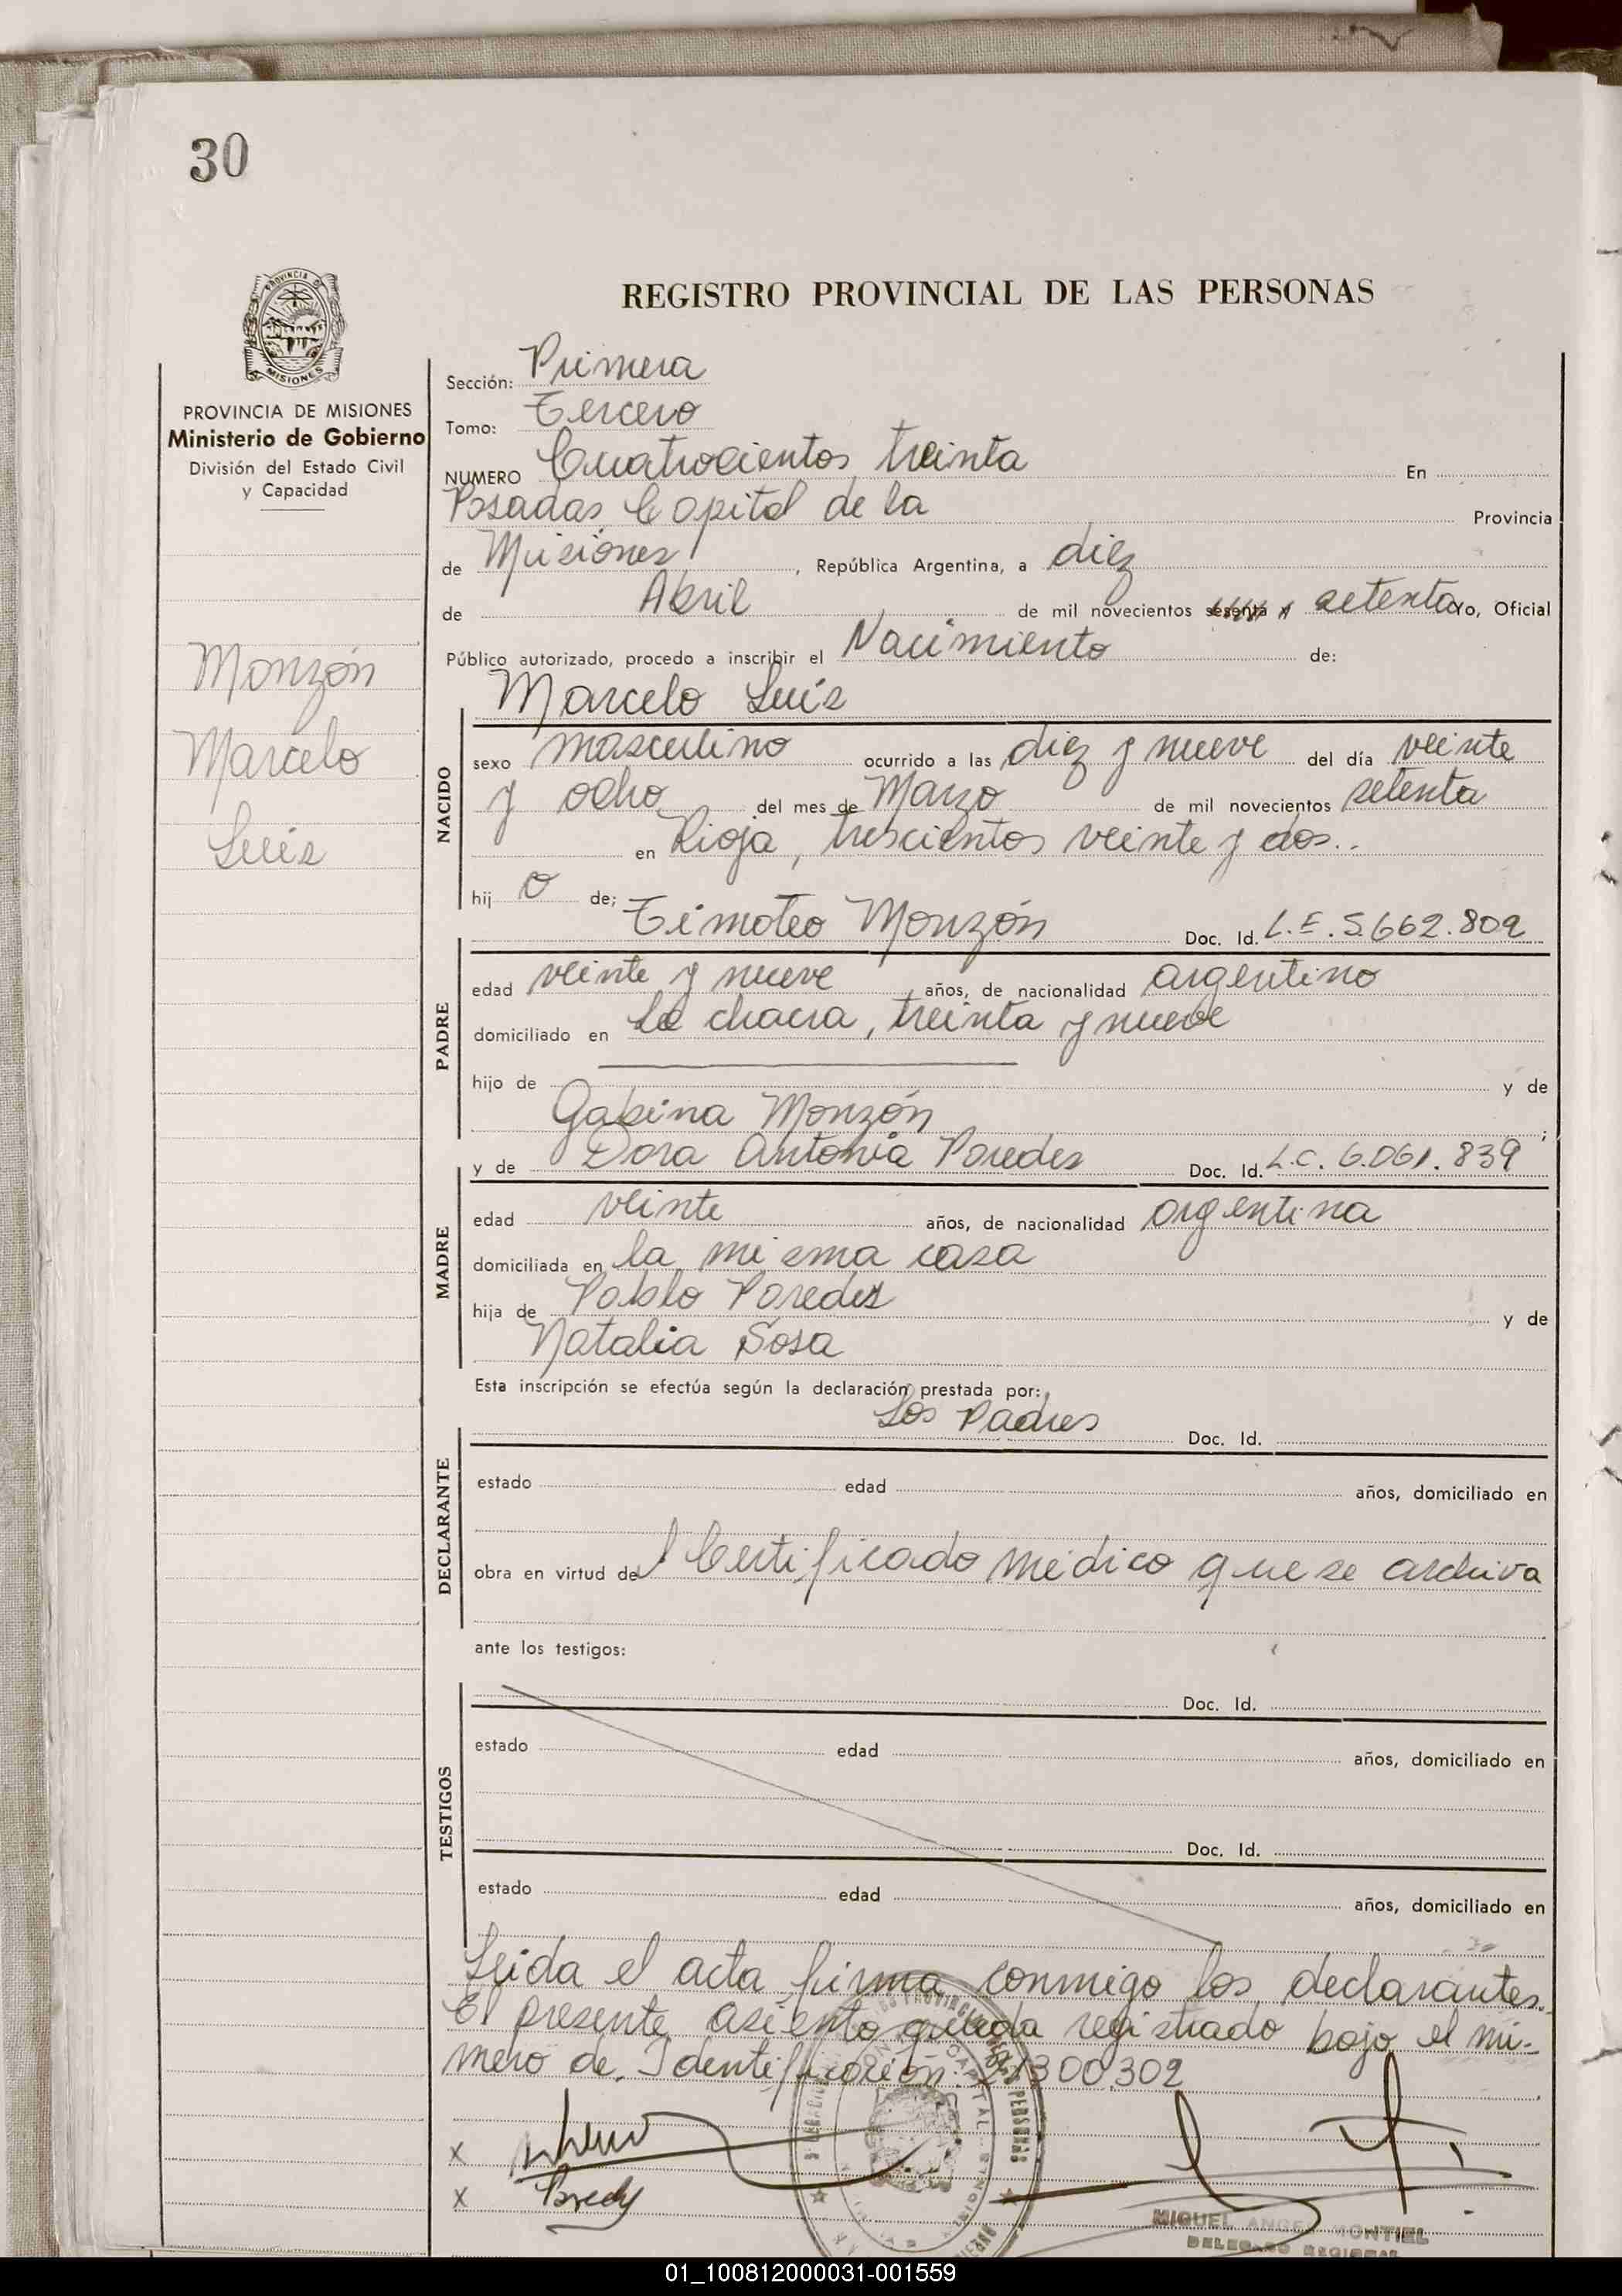 30
PROVINCIA
MISIONES
REGISTRO PROVINCIAL DE LAS PERSONAS
PROVINCIA DE MISIONES
Ministerio de Gobierno
División del Estado Civil
y Capacidad
Monzón
Marcelo
Luis
Sección: Primera
Tomo: Tercero
NUMERO Cuatrocientos treinta En
Posadas Capital de la Provincia
de Misiones, República Argentina, a diez
de Abril de mil novecientos sesenta y setenta Yo, Oficial
Público autorizado, procedo a inscribir el Nacimiento de:
Marcelo Luis
NACIDO
sexo masculino ocurrido a las diez y nueve del día veinte
y ocho del mes de Marzo de mil novecientos setenta
en Rioja, trescientos veinte y dos..
hij o de;
Timoteo Monzón Doc. Id. L.E. 5.662.802
PADRE
edad veinte y nueve años, de nacionalidad argentino
domiciliado en la chacra, treinta y nueve
hijo de y de
Gabina Monzón ;
y de Dora Antonia Paredes Doc. Id. L.C. 6.061.839
MADRE
edad veinte años, de nacionalidad argentina
domiciliada en la misma casa
hija de Pablo Paredes y de
Natalia Sosa
Esta inscripción se efectúa según la declaración prestada por:
Los Padres Doc. Id.
DECLARANTE
estado edad años, domiciliado en
obra en virtud del Certificado médico que se archiva
ante los testigos:
TESTIGOS
Doc. Id.
estado edad años, domiciliado en
Doc. Id.
estado edad años, domiciliado en
Leida el acta firma conmigo los declarantes.
El presente asiento queda registrado bajo el nú-
mero de Identificación: 21300.302
X
X
MIGUEL ANGEL MONTIEL
DELEGADO REGIONAL
01_100812000031-001559